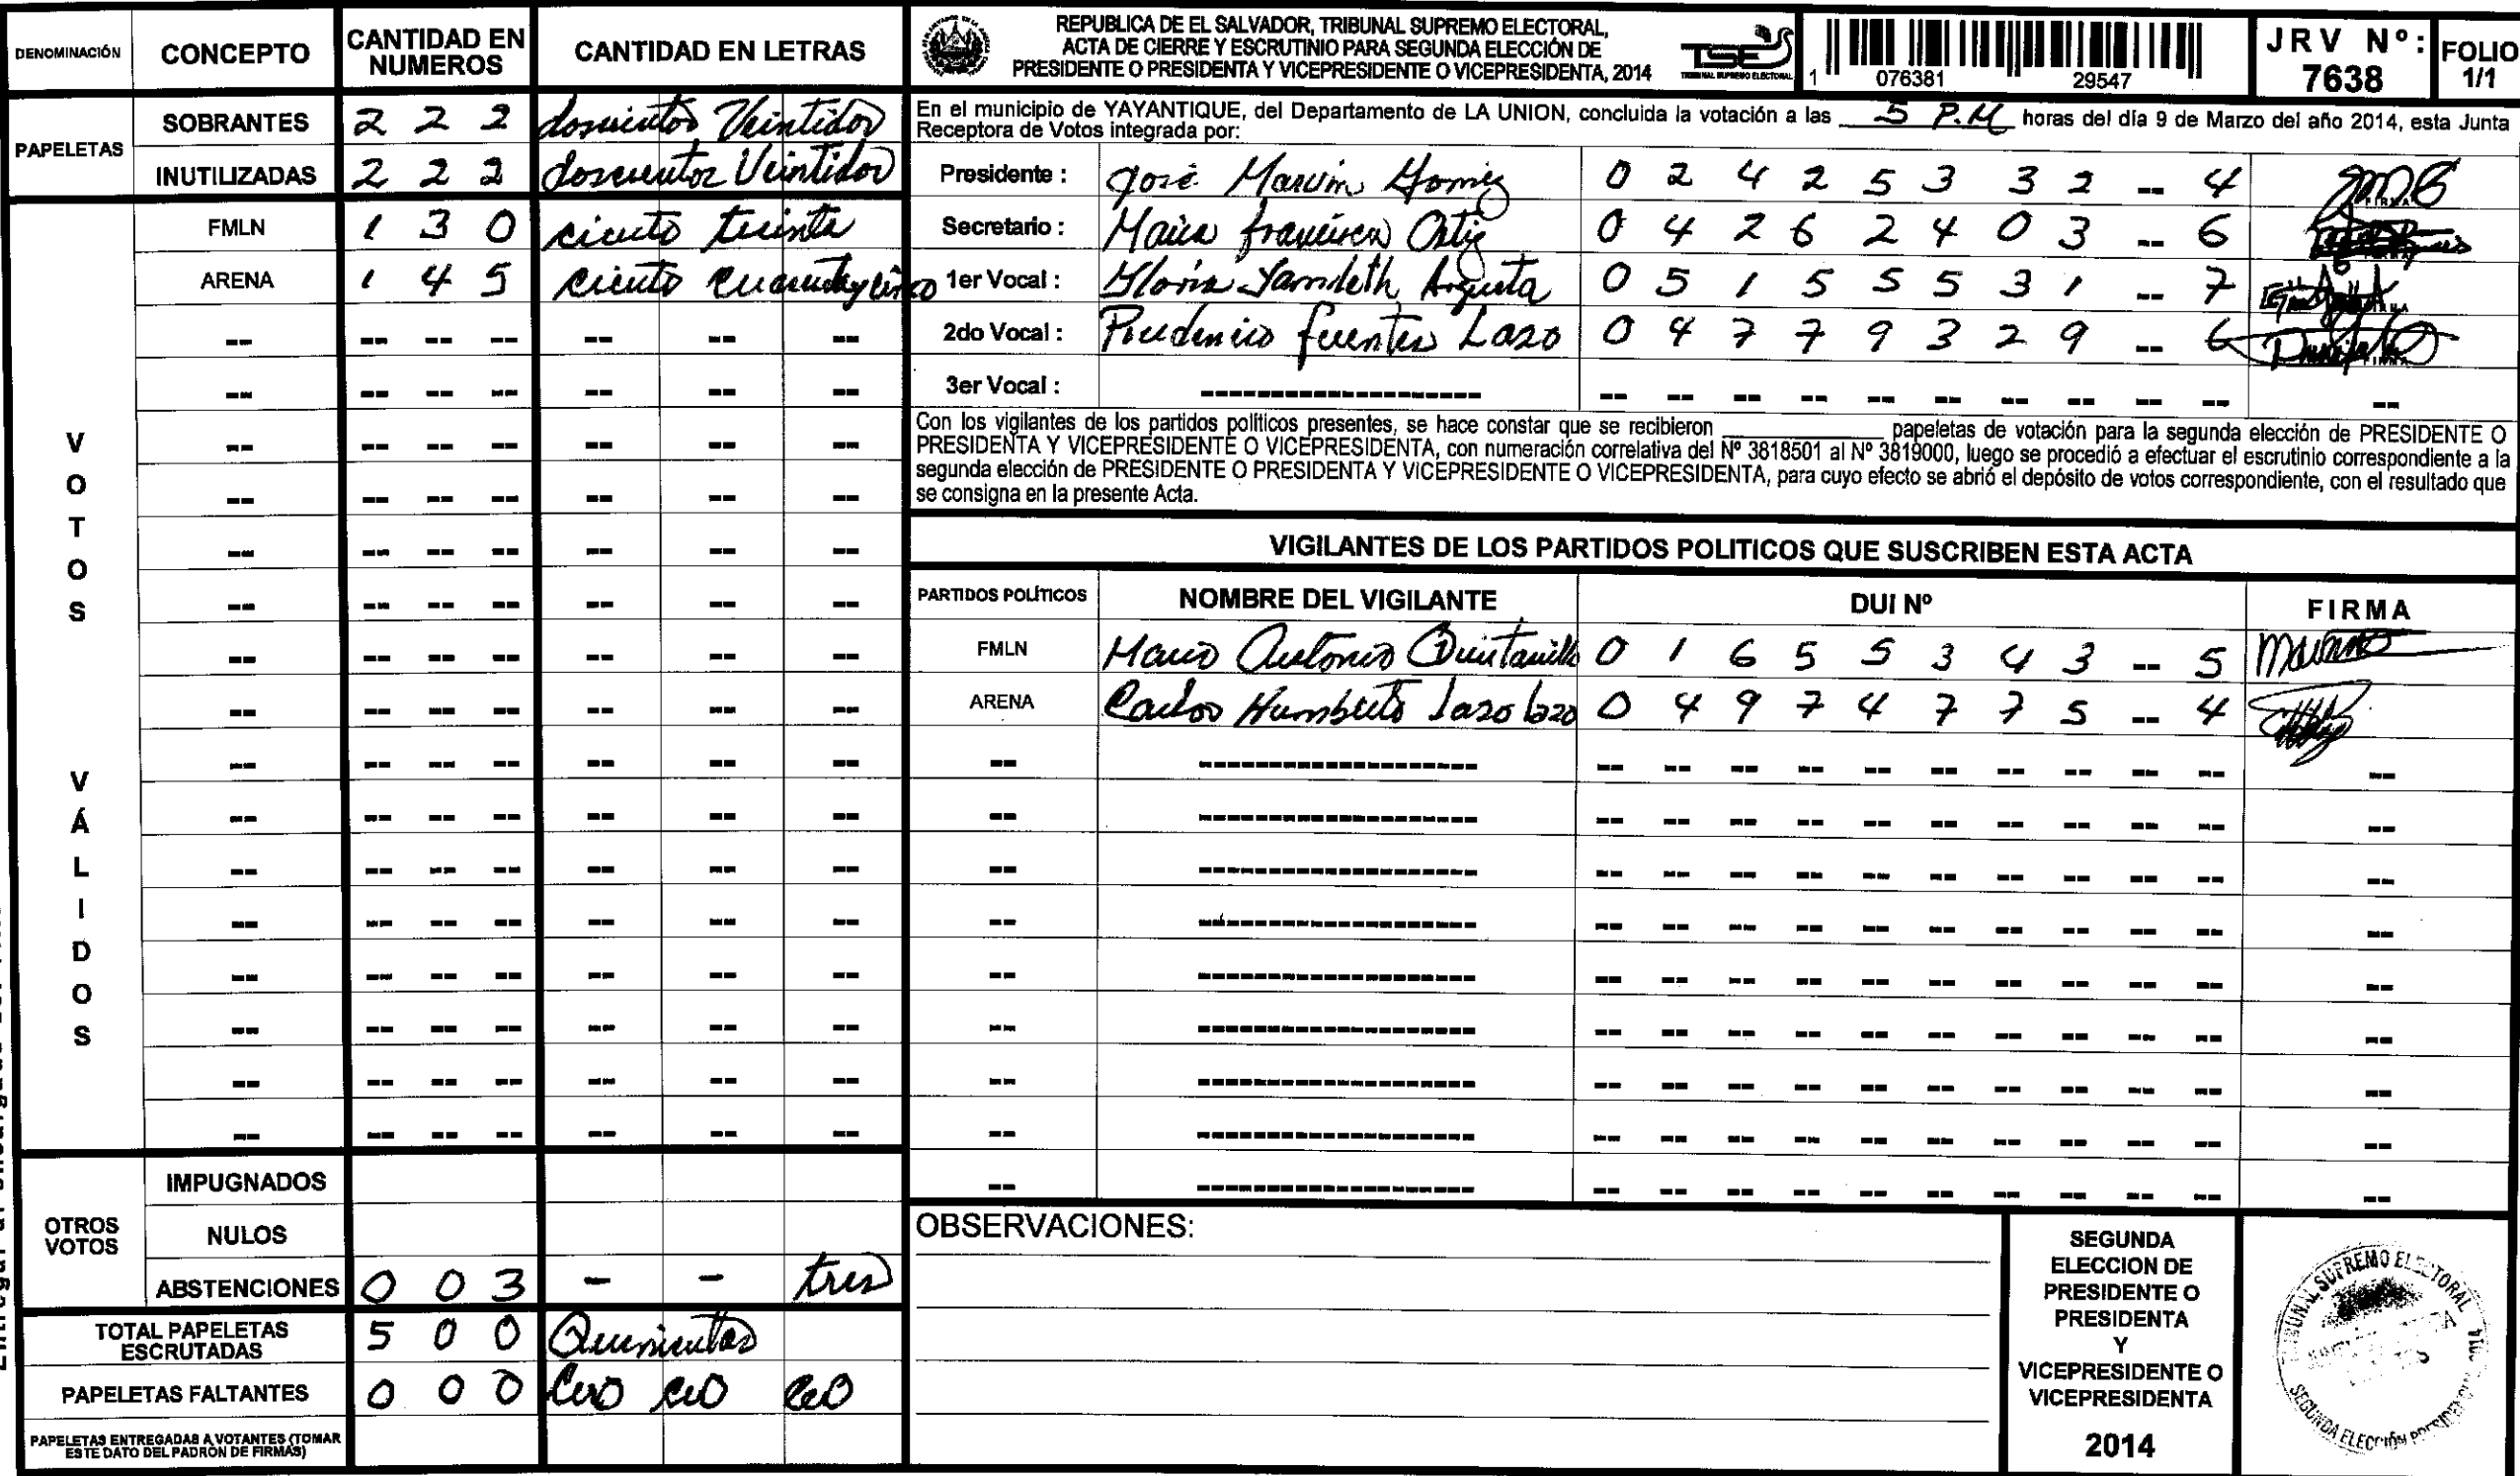 DENOMINACIÓN CONCEPTO CANTIDAD EN NUMEROS CANTIDAD EN LETRAS
PAPELETAS
SOBRANTES 2 2 2 doscientos Veintidos
INUTILIZADAS 2 2 2 doscientos Veintidos
VOTOS VÁLIDOS
FMLN 1 3 0 ciento treinta
ARENA 1 4 5 ciento cuarenta y cinco
OTROS VOTOS
IMPUGNADOS
NULOS
ABSTENCIONES 0 0 3 - - tres
TOTAL PAPELETAS ESCRUTADAS 5 0 0 Quinientos
PAPELETAS FALTANTES 0 0 0 Cero cero cero
PAPELETAS ENTREGADAS A VOTANTES (TOMAR ESTE DATO DEL PADRÓN DE FIRMAS)
REPUBLICA DE EL SALVADOR, TRIBUNAL SUPREMO ELECTORAL,
ACTA DE CIERRE Y ESCRUTINIO PARA SEGUNDA ELECCIÓN DE
PRESIDENTE O PRESIDENTA Y VICEPRESIDENTE O VICEPRESIDENTA, 2014
TSE
TRIBUNAL SUPREMO ELECTORAL
1 076381 29547
JRV Nº: 7638
FOLIO 1/1
En el municipio de YAYANTIQUE, del Departamento de LA UNION, concluida la votación a las 5 P.M horas del día 9 de Marzo del año 2014, esta Junta
Receptora de Votos integrada por:
Presidente : José Marvin Gomez 0 2 4 2 5 3 3 2 -- 4
Secretario : Maria francisca Ortiz 0 4 2 6 2 4 0 3 -- 6
1er Vocal : Gloria Yamileth Argueta 0 5 1 5 5 5 3 1 -- 7
2do Vocal : Prudencio fuentes Lazo 0 4 7 7 9 3 2 9 -- 6
3er Vocal :
Con los vigilantes de los partidos políticos presentes, se hace constar que se recibieron ____ papeletas de votación para la segunda elección de PRESIDENTE O
PRESIDENTA Y VICEPRESIDENTE O VICEPRESIDENTA, con numeración correlativa del Nº 3818501 al Nº 3819000, luego se procedió a efectuar el escrutinio correspondiente a la
segunda elección de PRESIDENTE O PRESIDENTA Y VICEPRESIDENTE O VICEPRESIDENTA, para cuyo efecto se abrió el depósito de votos correspondiente, con el resultado que
se consigna en la presente Acta.
VIGILANTES DE LOS PARTIDOS POLITICOS QUE SUSCRIBEN ESTA ACTA
PARTIDOS POLÍTICOS NOMBRE DEL VIGILANTE DUI Nº FIRMA
FMLN Mario Antonio Quintanilla 0 1 6 5 5 3 4 3 -- 5
ARENA Carlos Humberto Lazo Lazo 0 4 9 7 4 7 7 5 -- 4
OBSERVACIONES:
SEGUNDA
ELECCION DE
PRESIDENTE O
PRESIDENTA
Y
VICEPRESIDENTE O
VICEPRESIDENTA
2014
TRIBUNAL SUPREMO ELECTORAL
SEGUNDA ELECCIÓN